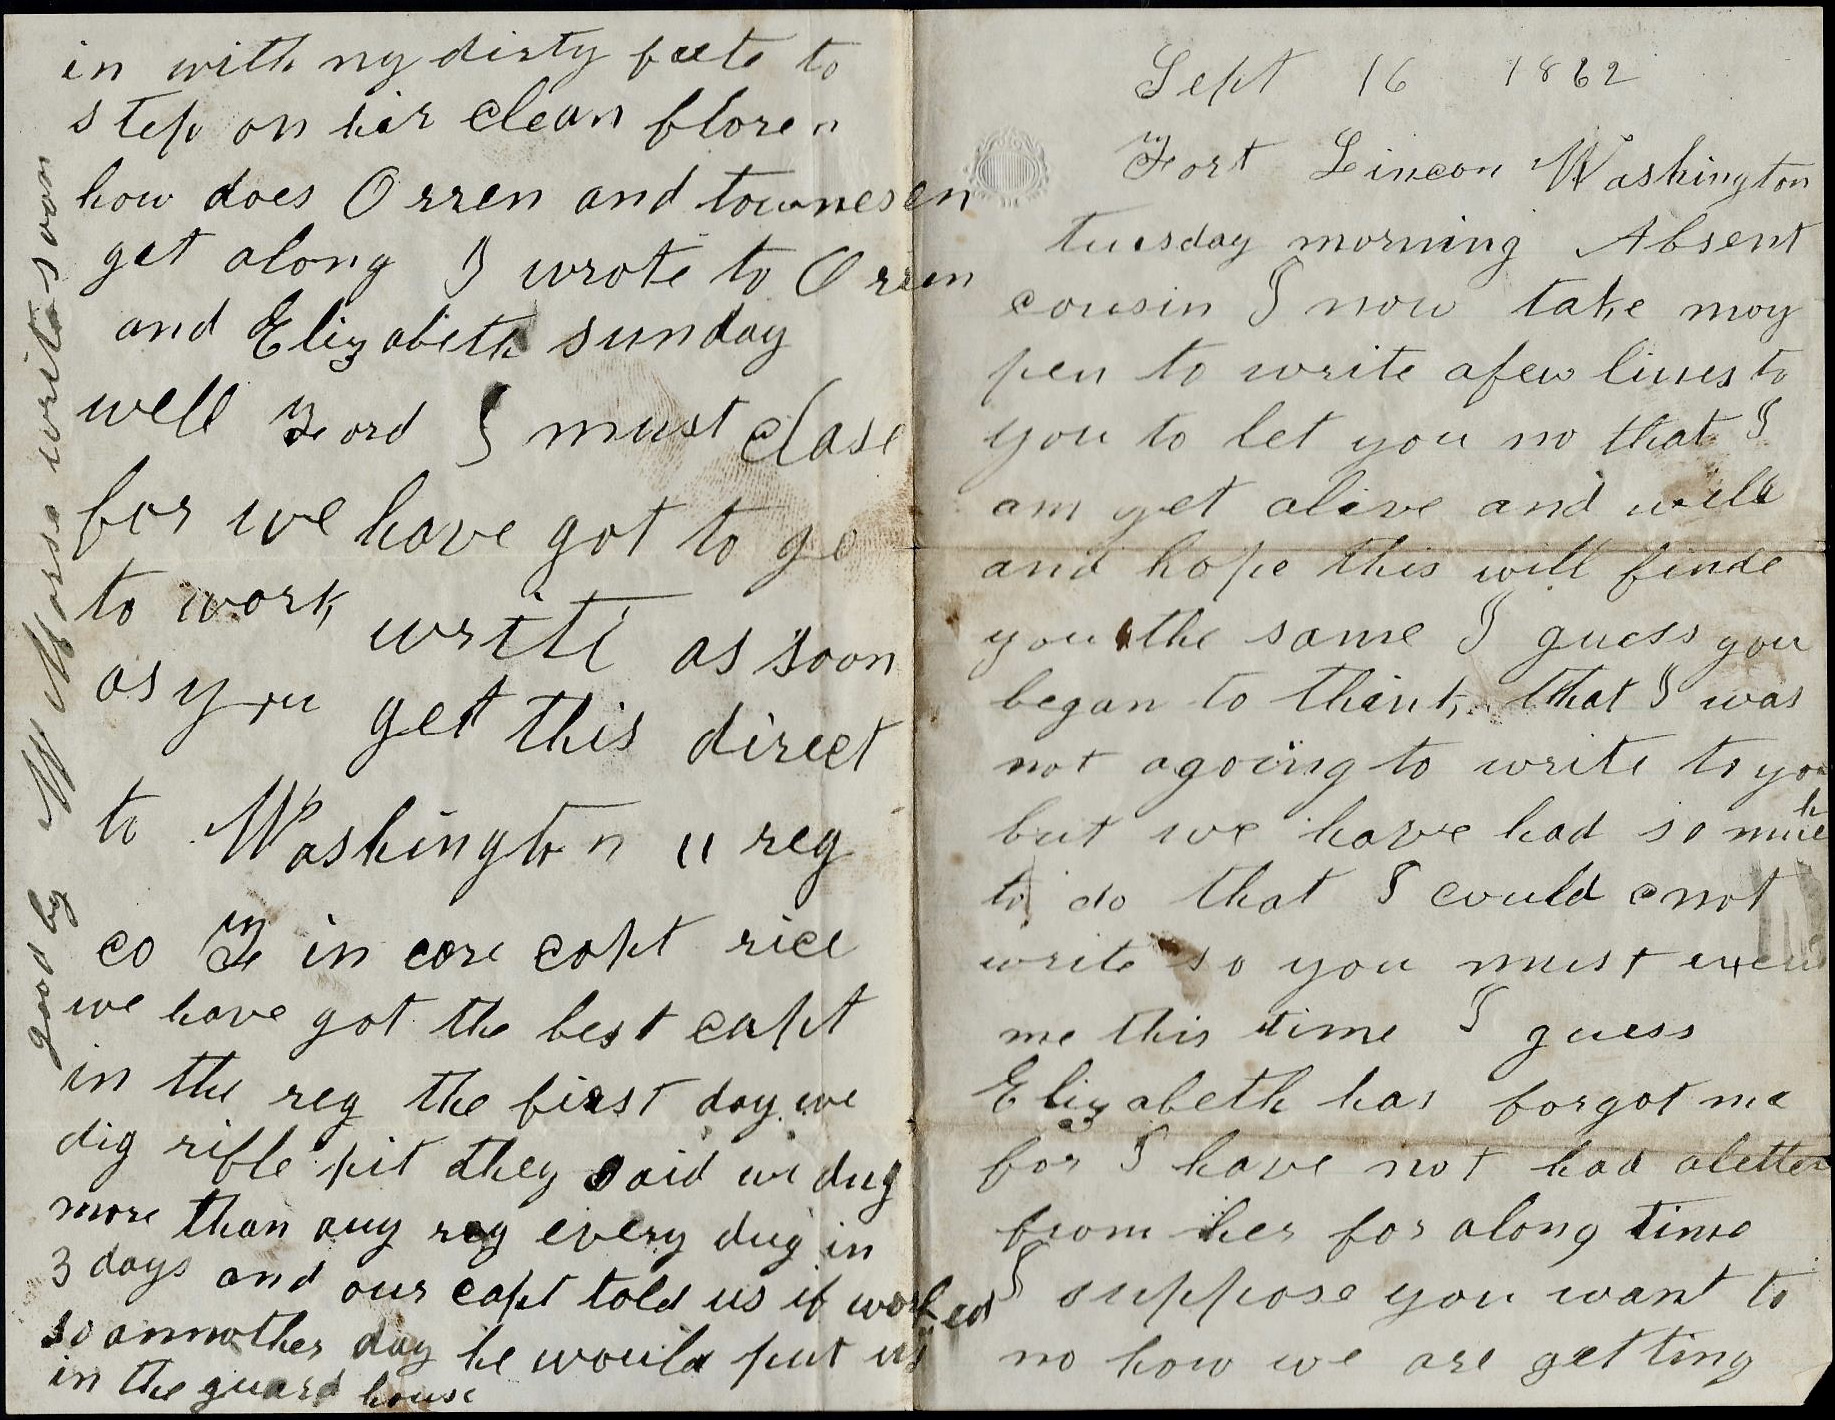 Sept 16 1862
Fort Lincon Washington
tuesday morning Absent
cousin I now take moy
pen to write afew lines to
you to let you no that I
am yet alive and well
and hope this will finde
you the same I guess you
began to think that I was
not agoing to write to you
but we have had so much
to do that I could cnot
write so you must
me this time I guess
Elizabeth has forgot me
for I have not had aletter
from her for along time
I suppose you want to
no how we are getting
in with my dirty feete to
step on her clean floren
how does Orren and townesen
get along I wrote to Orren
and Elizabeth sunday
well Ford I must close
for we have got to go
to work write as soon
as you get this direct
to Washington 11 reg
co F in care capt rice
we have got the best capt
in the reg the first day we
dig rifle pit they said we dug
more than any reg every dug in
3 days and our capt told us if worked
so annother day he would put us
in the guard house
good by W Morse write soon